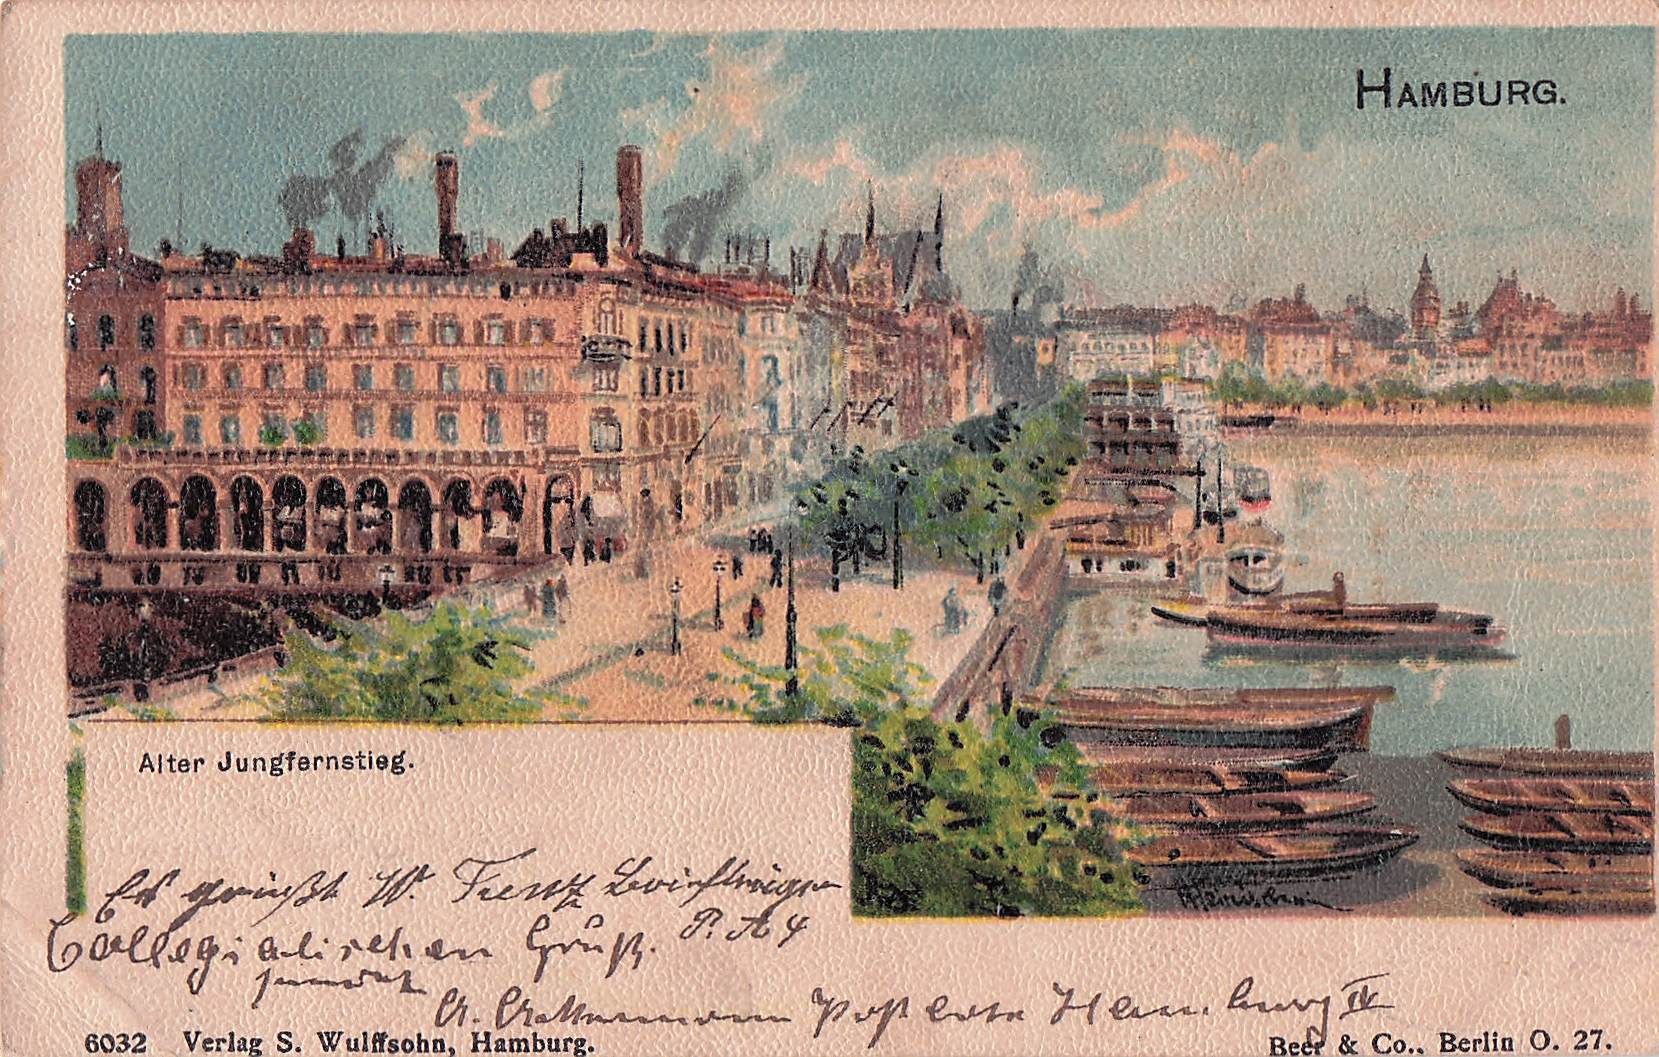 HAMBURG.
Alter Jungfernstieg.
Es grüßt W. Frentz Briefträger
P. A 4
Collegialischen Gruß.
Postbote Hamburg IV
6032 Verlag S. Wulffsohn, Hamburg.
Beer & Co., Berlin O. 27.